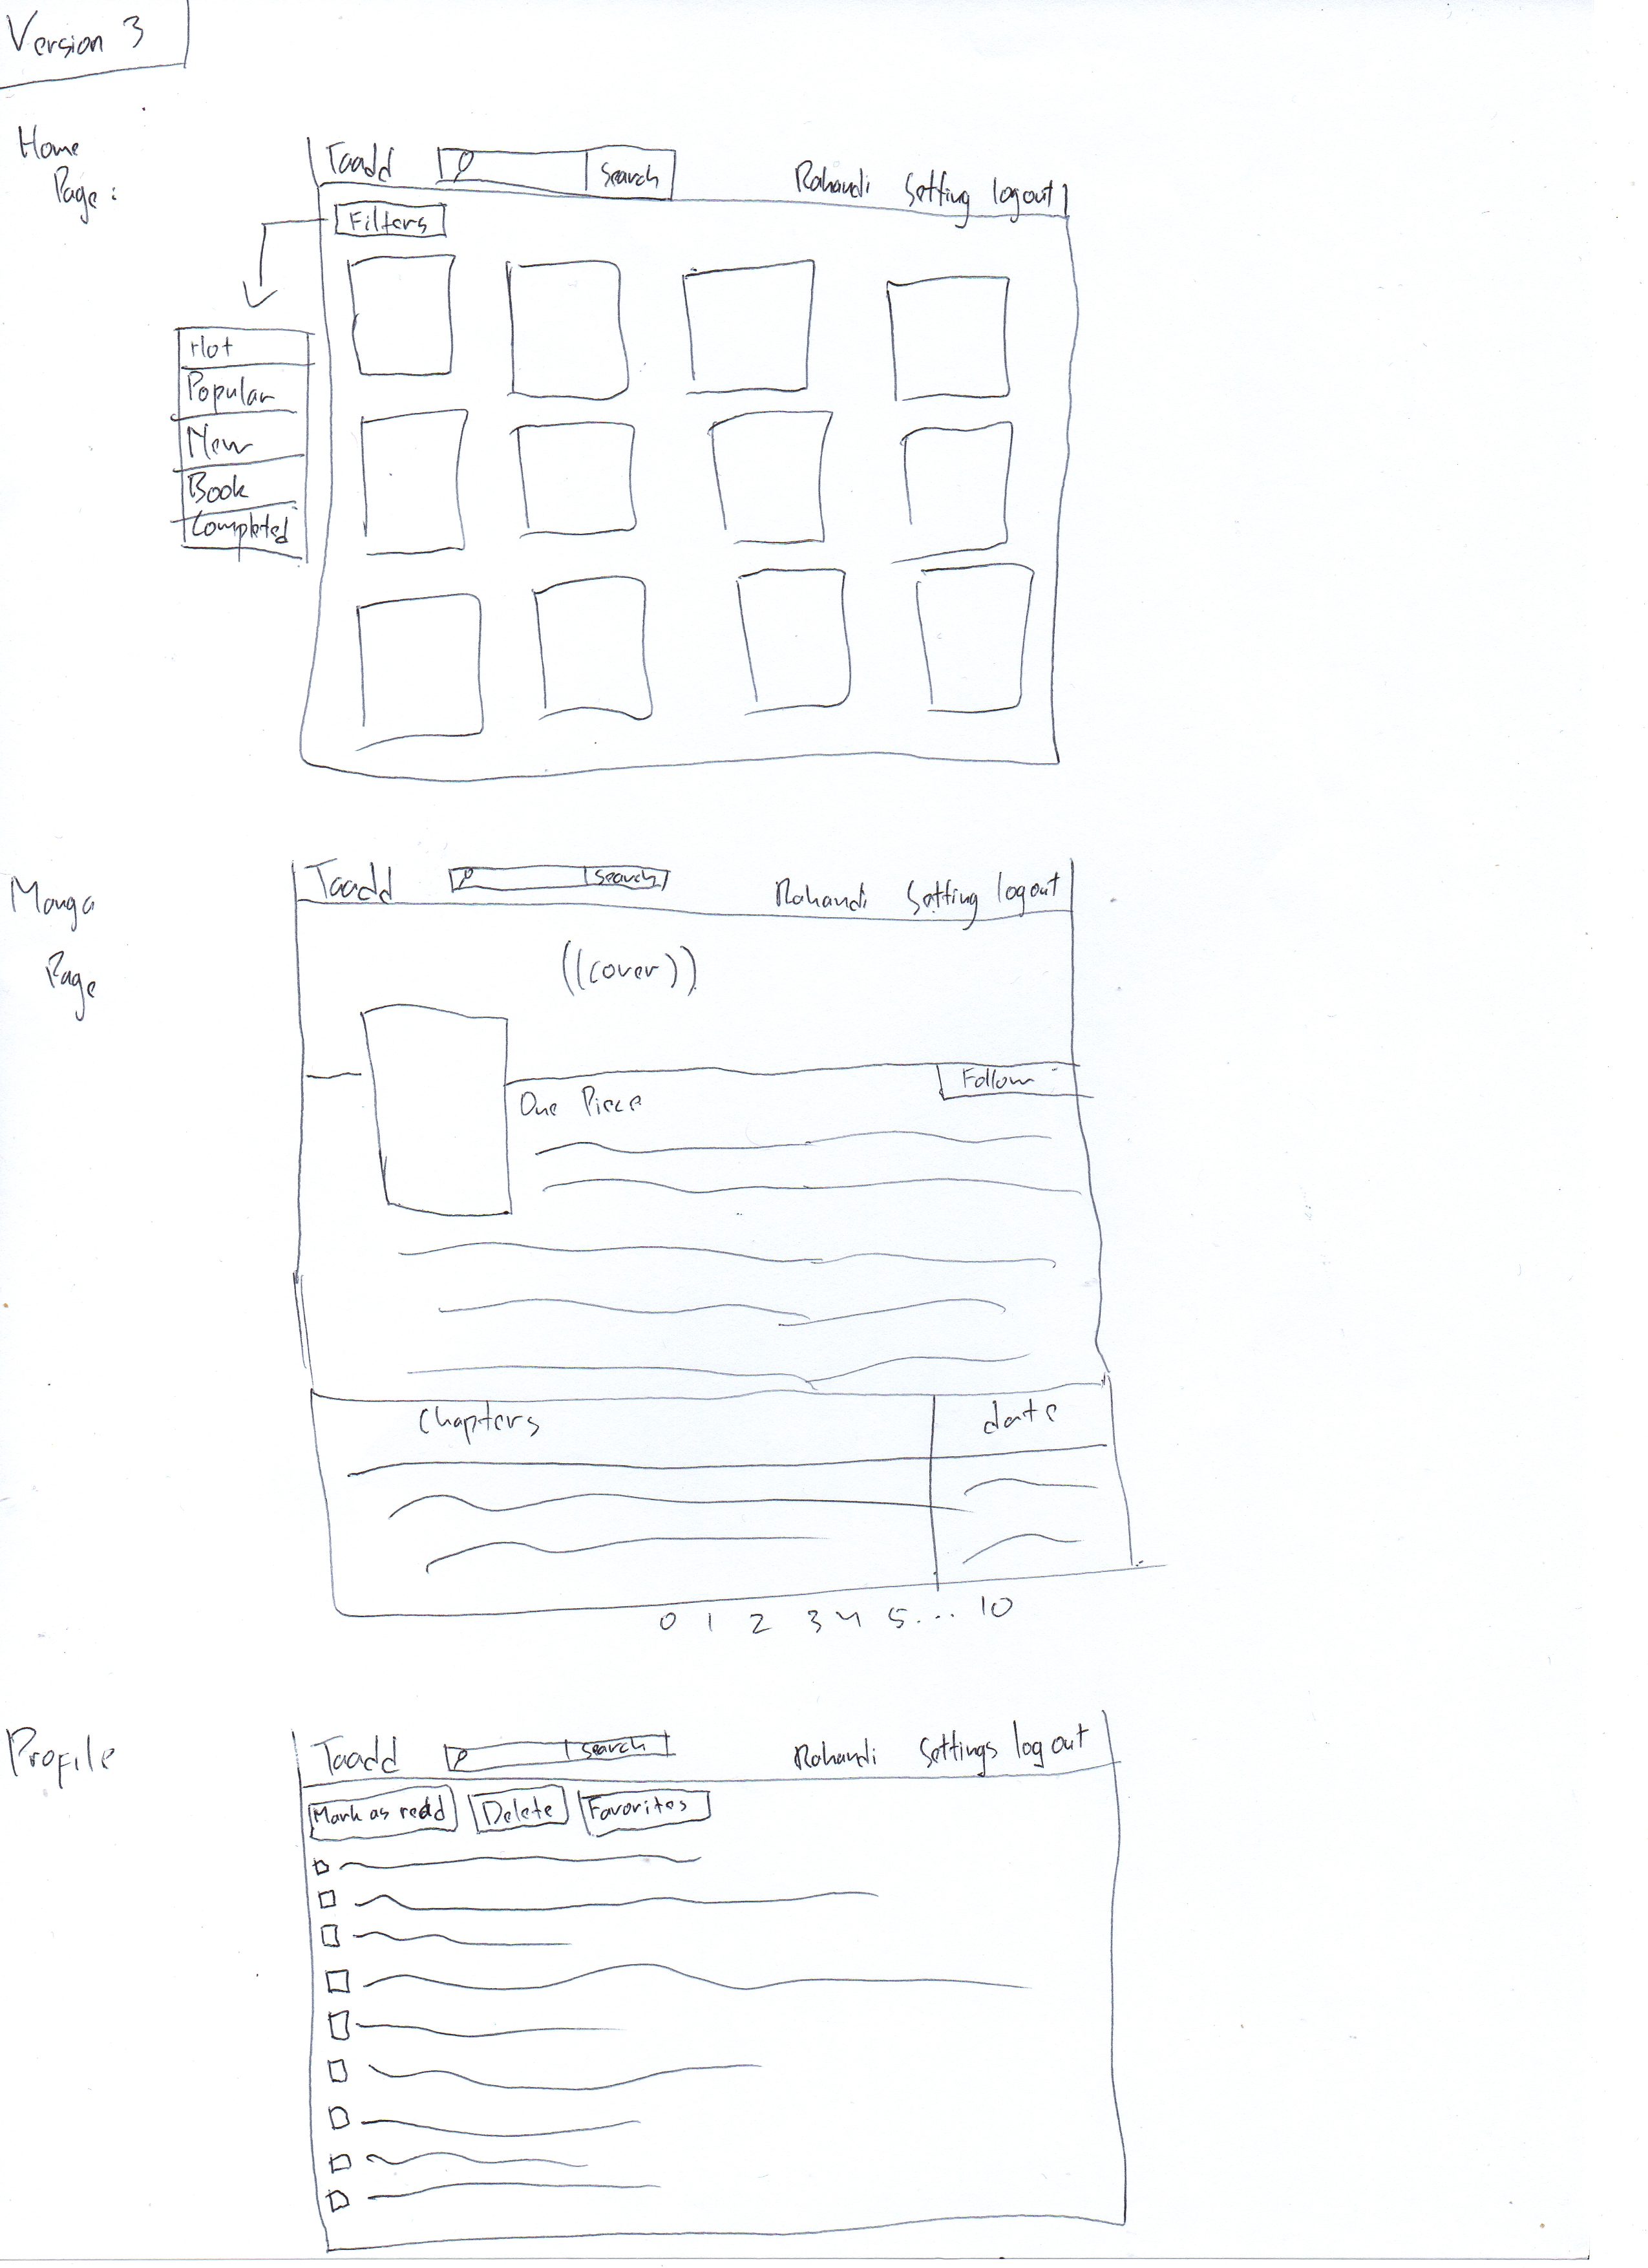 Version 3
Home
Page:
Taadd Search Rohandi Setting logout
Filters
Hot
Popular
New
Book
Completed
Manga
Page
Taadd Search Rohandi Setting logout
((cover))
Follow
One Piece
Chapters date
0 1 2 3 4 5... 10
Profile
Taadd Search Rohandi Settings log out
Mark as read Delete Favorites